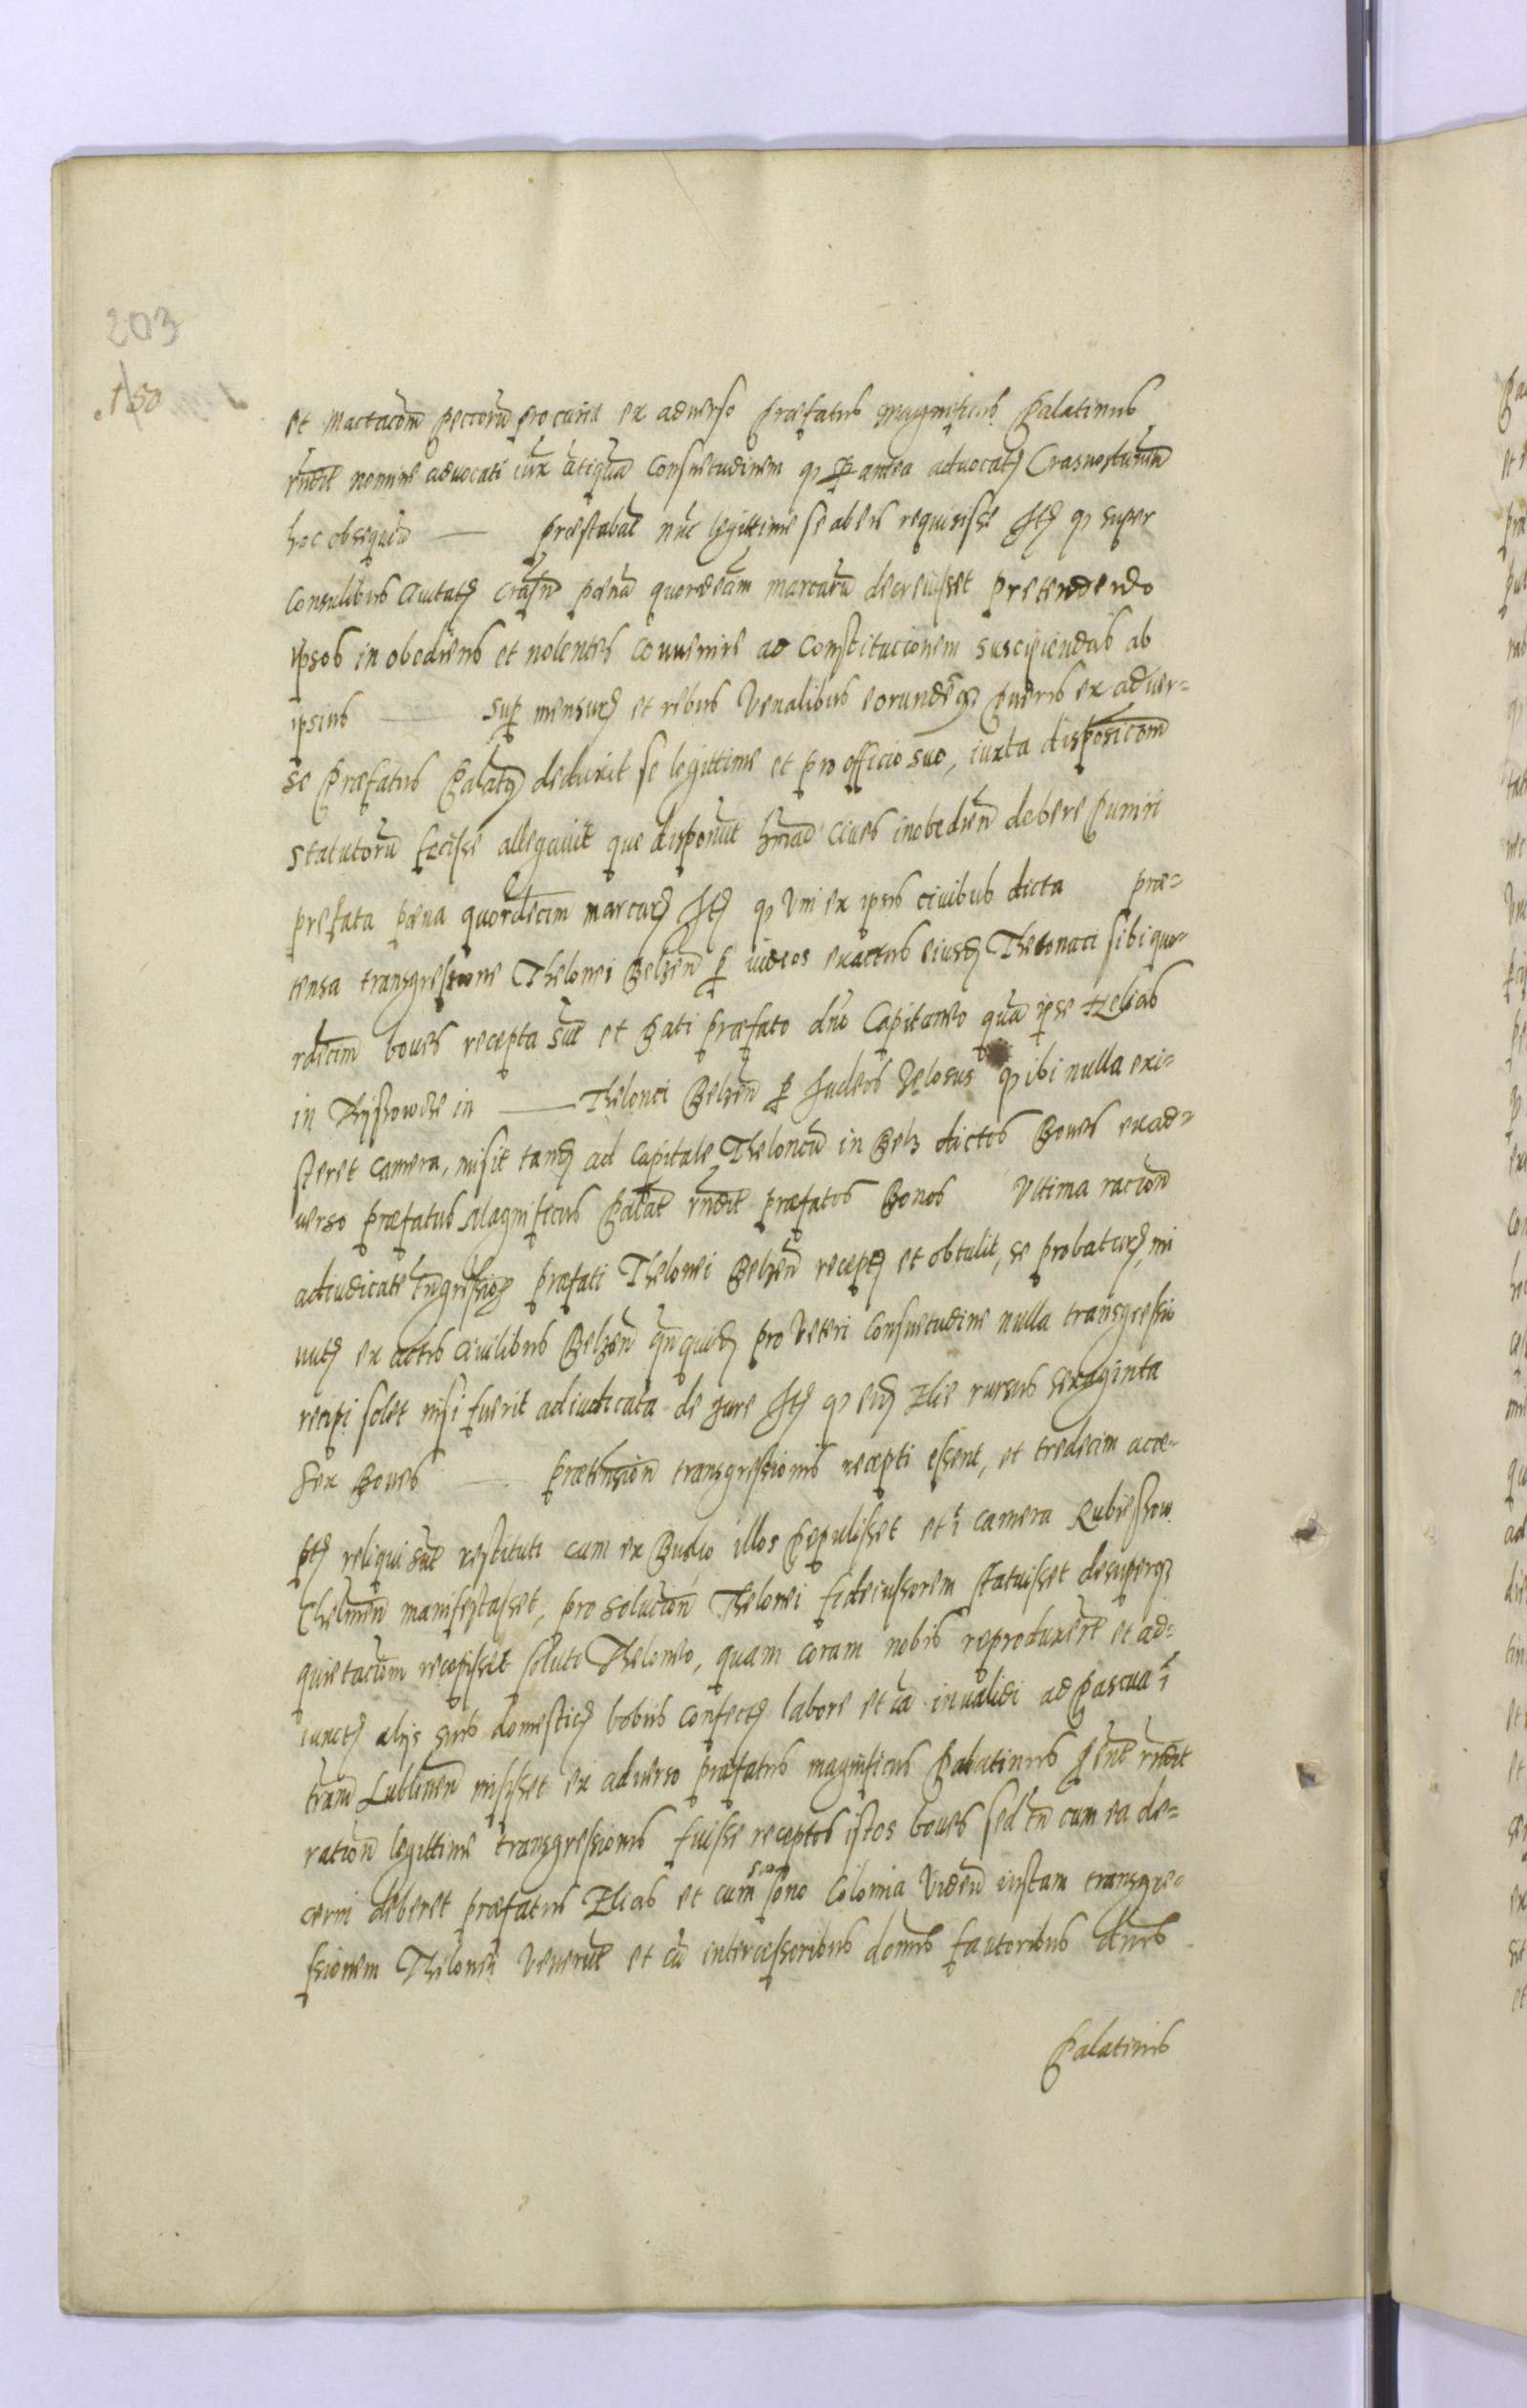 203
150
et mactacom̄ peccorū procurie ex aduerso præfatus magnificus Palatinus
rndit nomine aduocati iux̄ ātiquā consuetudinem q per antea aduocat Crasnostauien
hoc obsequiū — præstabāt nūc legittime se ab eis requisisse Itē q super
Consulibus Ciuitatis crasn̄ pœna quordecim marcarū decreuisset pretendendo
ipsos in obediens et nolentes conuenire ad constitucionem suscipiendas ab
ipsius — sup mensuris et rebus venalibus eorundēq ex aduer-
so Præfatus Palat deduxit se legittime et pro officio suo, iuxta disposicom̄
statutorū fecisse allegauit que disponūt ciues inobedien̄ debere puniri
prefata pœna quordecim marcar Itē q vni ex ipsis ciuibus dicta præ-
tensa transgressione Thelonei Belzen̄ p iudeos exactores eiusd Thelonaci sibi quo-
rdecim boues recepta sūt et dati præfato dno Capitaneo quā ipse Helias
in Thissowcze in — Thelonei Belzen̄ p Iudeos q ibi nulla exi-
steret camera, misit tamē ad capitale Theloneū in Belz dictos Boues exad-
uerso præfatus Magnificus Palāt rndit præfatos Boues Vltima racion̄
adiudicate tngressiois præfati Thelonei Belzen̄ recept et obtulit, se probatur, mi
nut ex actis ciuilibus Belzen̄ qn̄quid pro veteri consuetudine nulla transgressio
recipi solet nisi fuerit adiudicata de Iure Itē q eid Elie rursus sexaginta
sex Boues — prætension̄ transgressionis recepti essent, et tredecim acce-
ptis reliqui sūt restituti cum ex illos pepulisset et ī camera Rubiessow
Chelmen̄ manifestasset, pro solucion̄ Thelonei fideiussorem statuisset desuperq
quietacion̄ recepisset soluti Theloneo, quam coram nobis reproduxerūt et ad-
iunct alijs suis domestic bobus confect labore et invalidi ad Pascua ī
trām Lublinen̄ misisset ex aduerso præfatus magnificus Palatinus rndit
ration̄ legittime transgressionis fuisse receptos istos boues sed tn̄ cum ea de-
cerni deberet præfatus Elias et cum suo colonia Viden̄ iustam transgre-
ssionem Thelonei venerūt et cū intercessoribus fautoribus
Palatinus